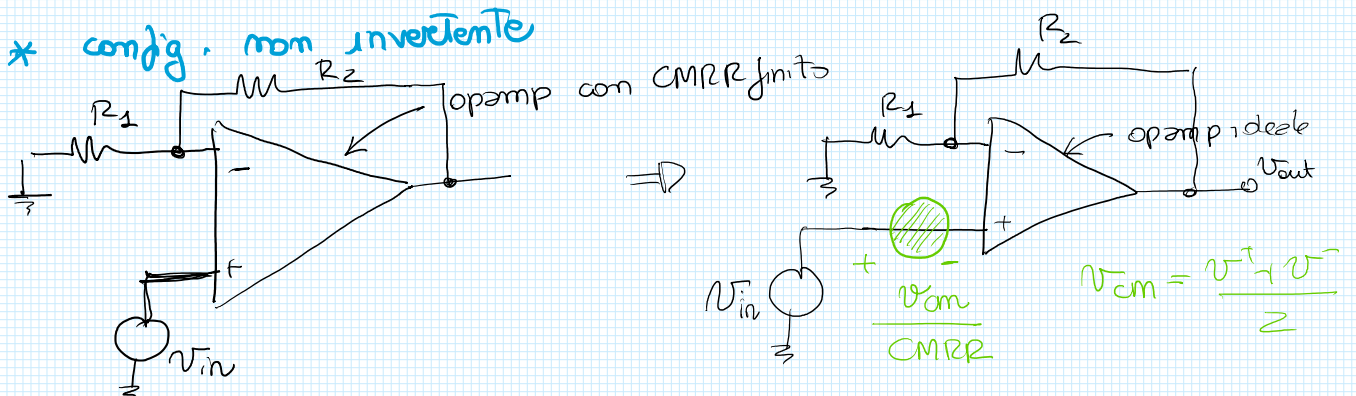 * config. non invertente
R2
R1
opamp con CMRR finito
-
+
Vin
R2
R1
opamp ideale
-
+
Vout
Vin
+ -
vcm
CMRR
vcm = v+ + v-
2